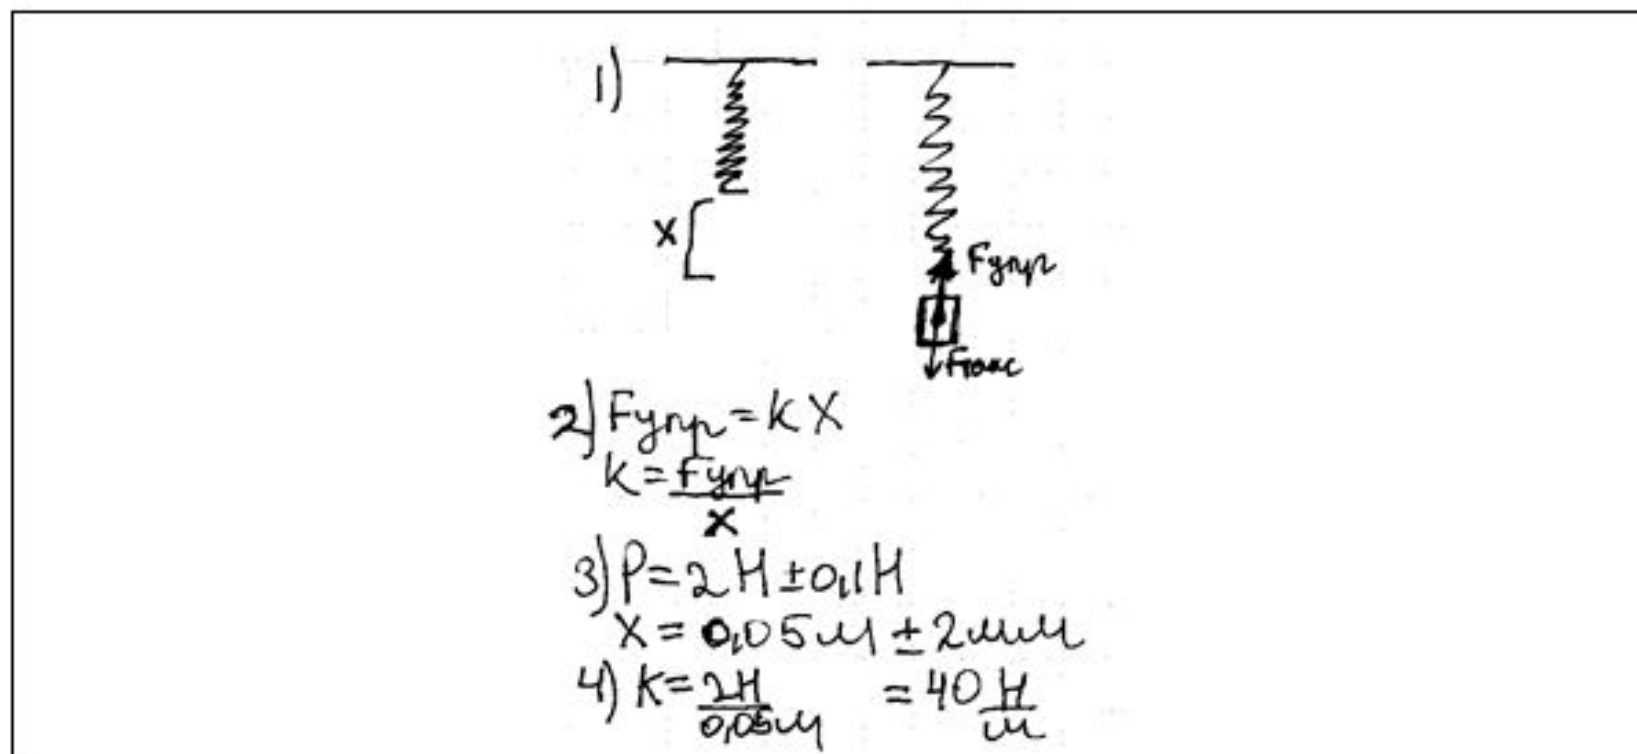 1)
x
Fупр
Fтяж
2) Fупр = k x
k = Fупр / x
3) P = 2 H ± 0,1 H
x = 0,05 м ± 2 мм
4) k = 2H / 0,05м = 40 H / м